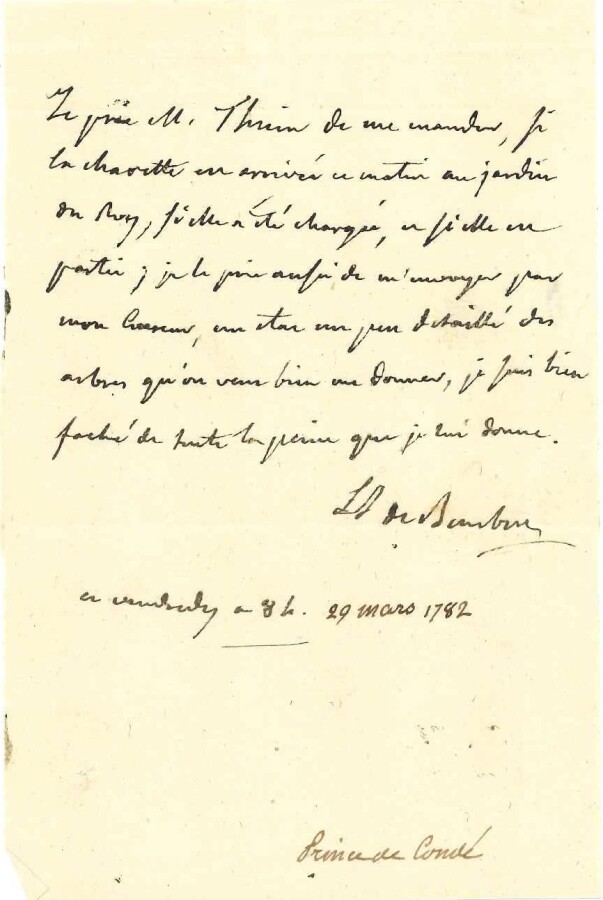 Je prie M. Thouin de me mander, si
la charette est arrivée ce matin au jardin
du Roy, si elle a été chargée, et si elle est
partie; je le prie aussi de m'envoyer par
mon Coureur, un etat un peu detaillé des
arbres qu'on veut bien me donner, je suis bien
faché de toute la peine que je lui donne.
de Bourbon
ce vendredy a 8 h. 29 mars 1782
Prince de Condé